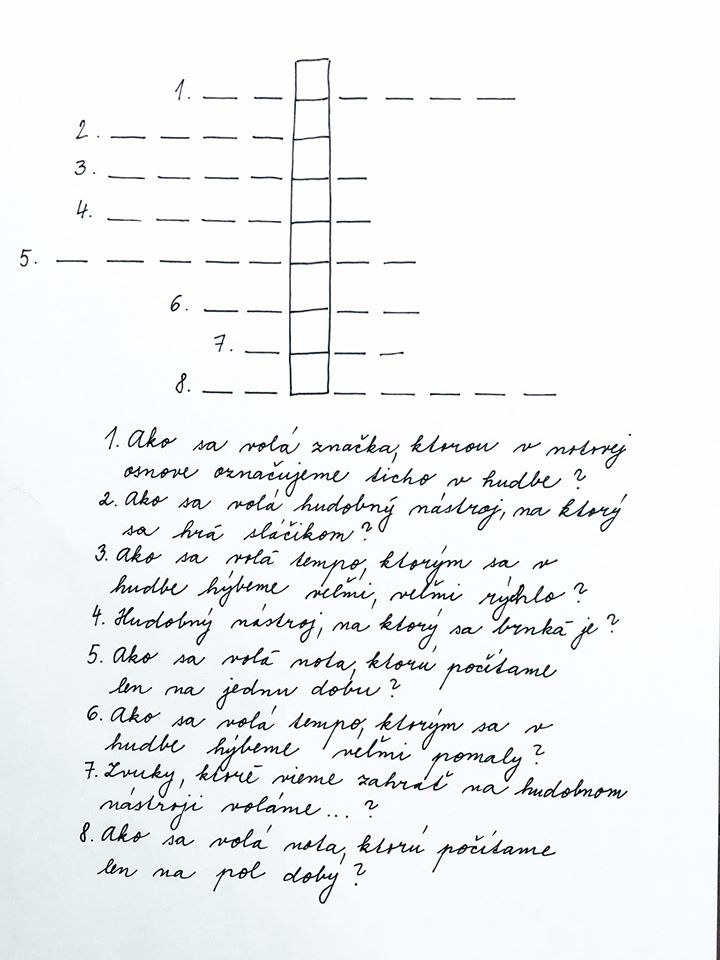 1.
2.
3.
4.
5.
6.
7.
8.
1. Ako sa volá značka, ktorou v notovej
osnove označujeme ticho v hudbe?
2. Ako sa volá hudobný nástroj, na ktorý
sa hrá sláčikom?
3. Ako sa volá tempo, ktorým sa v
hudbe hýbeme veľmi, veľmi rýchlo?
4. Hudobný nástroj, na ktorý sa brnká je?
5. Ako sa volá nota, ktorú počítame
len na jednu dobu?
6. Ako sa volá tempo, ktorým sa v
hudbe hýbeme veľmi pomaly?
7. Zvuky, ktoré vieme zahrať na hudobnom
nástroji voláme...?
8. Ako sa volá nota, ktorú počítame
len na pol doby?